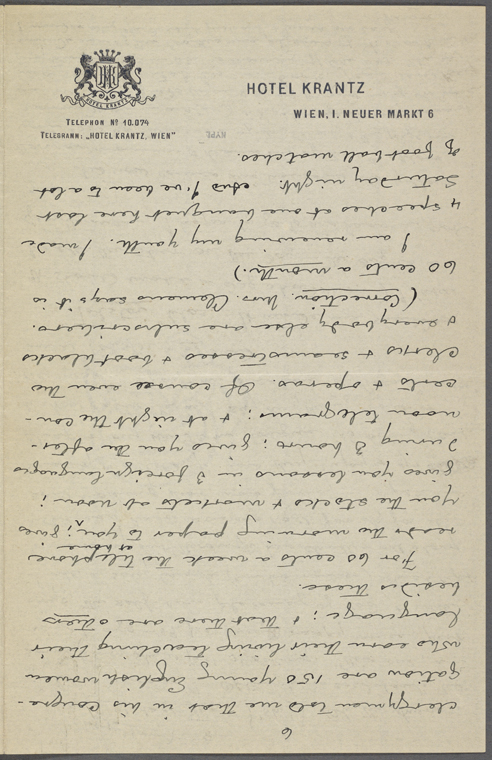 HOTEL KRANTZ
HOTEL KRANTZ
WIEN, I. NEUER MARKT 6
TELEPHON Nº 10.074
TELEGRAMM: „HOTEL KRANTZ, WIEN"
6
clergyman told me that in his congre-
gation are 150 young English women
who earn their living teaching their
language; & that there are others
besides these.
For 60 cents a week the telephone
reads the morning paper to you at home; gives
you the stocks & markets at noon;
gives you lessons in 3 foreign languages
during 3 hours; gives you the after-
noon telegrams; & at night the con-
certs & operas. Of course even the
clerks & seamstresses & bootblacks
& everybody else are subscribers.
(Correction. Mrs. Clemens says it is
60 cents a month.)
I am renewing my youth. I made
4 speeches at one banquet here last
Saturday night. And I've been to a lot
of football matches.